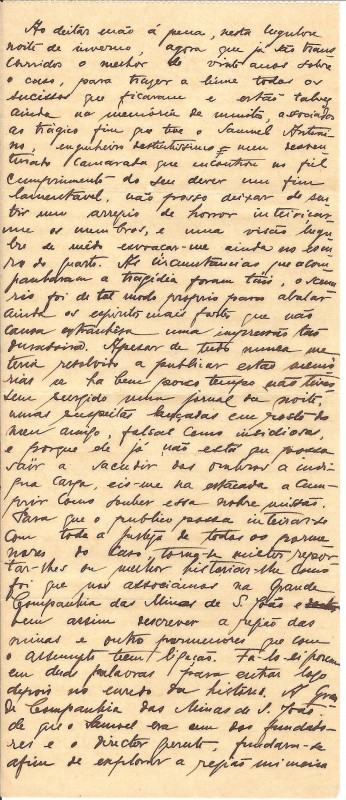 Ao deitar mão á pena, nesta lugubre
noite de inverno, agora que já são trans
corridos o melhor de vinte anos sobre
o caso, para trazer a lume todos os
sucessos que ficaram e estão talvez
ainda na memoria de muitos, associados
ao trágico fim que teve o Samuel
no, engenheiro distintissimo e meu
camarada que encontrou no fiel
cumprimento do seu dever um fim
lamentavel, não posso deixar de sen
tir um arrepio de horror inteiriçar
me os membros, e uma visão lugu
bre de mêdo envocar-me ainda no escu
ro do quarto. As circumstancias que acom
panharam a tragédia foram tais, o scena
rio foi de tal modo proprio para abalar
ainda os espiritos mais fortes que não
causa estranhêsa uma impressão tão
duradoira. Apesar de tudo nunca me
teria resolvido a publicar estas memo
rias se ha bem pouco tempo não tives
sem surgido num jornal da noite,
umas suspeitas lançadas em rosto do
meu amigo, falsas como insidiosas,
e porque ele já não está que possa
sair a sacudir dos ombros a indi
gna carga, eis-me na estacada a cum
prir como souber essa nobre missão.
Para que o publico possa inteirar-se
com toda a justiça de todos os porme
nores do caso, torna-se mister repor
tar-lhes ou melhor historiar-lhe como
foi que nos associámos na Grande
Companhia das Minas de S. João e
bem assim descrever a região das
minas e outros pormenores que com
o assumpto tem ligação. Fa-lo-ei porem
em duas palavras para entrar logo
depois no enredo da historia. A Gran
de Companhia das Minas de S. João
de que o Samuel era um dos fundado
res e o director gerente, fundara-se
afim de explorar a região mineira